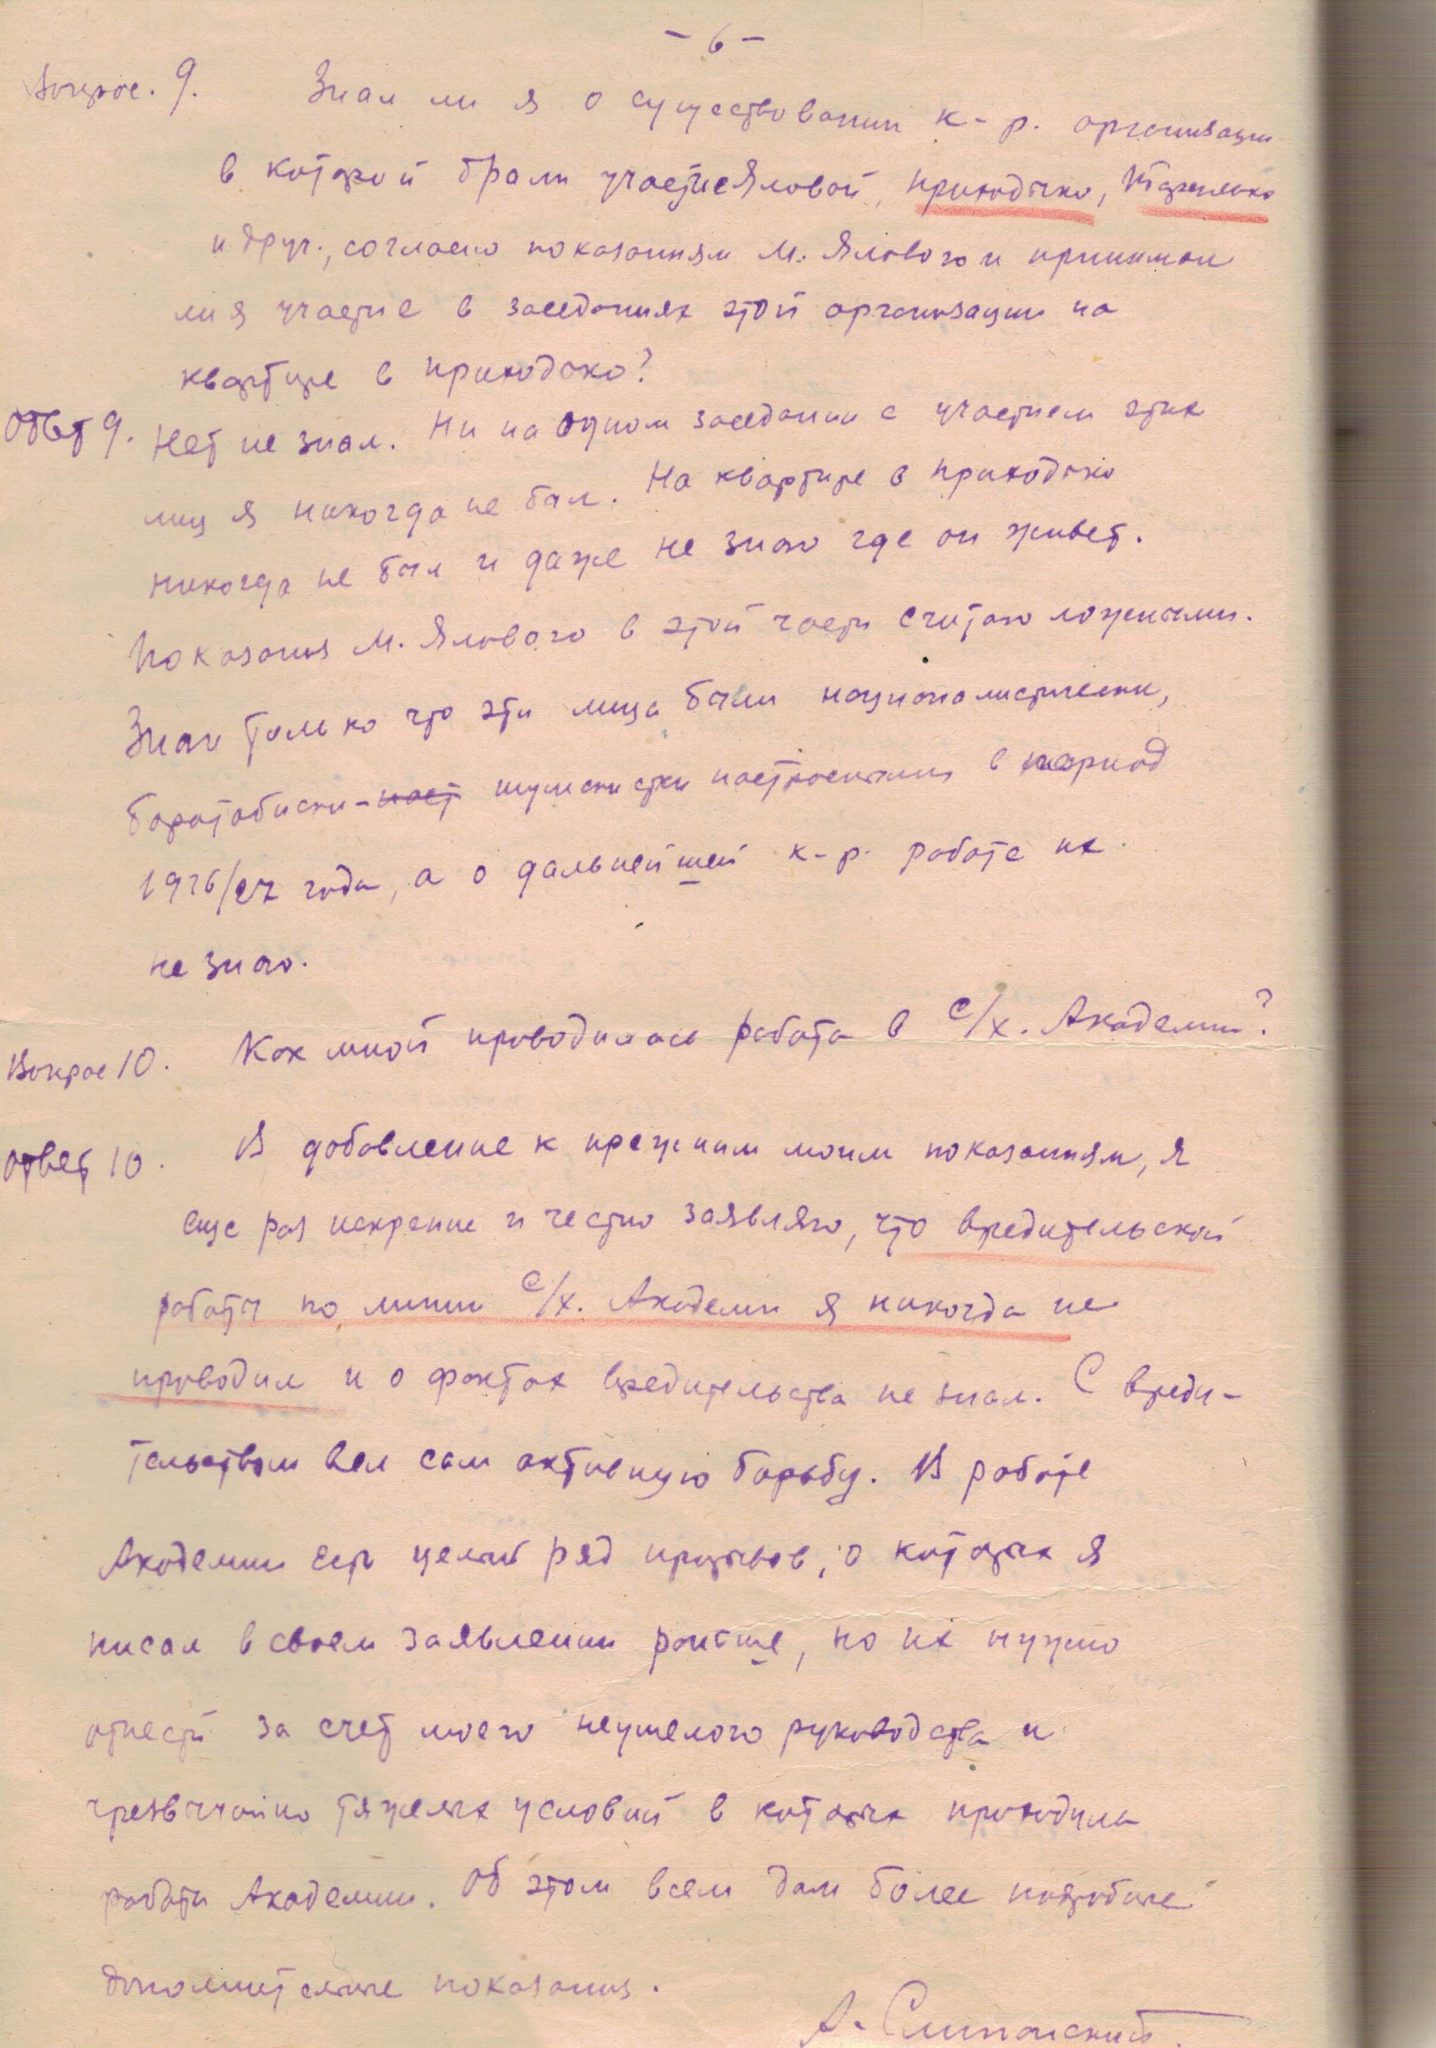 - 6 -
Вопрос. 9. Знал ли я о существовании к-р. организации
в которой брали участие Яловой, Приходько,
и друг., согласно показаниям М. Ялового и принимал
ли я участие в заседаниях этой организации на
квартире в Приходько?
Ответ 9. Нет не знал. Ни на одном заседании с участием этих
лиц я никогда не был. На квартире в Приходько
никогда не был и даже не знаю где он живет.
Показания М. Ялового в этой части считаю ложными.
Знаю только что эти лица были националистически,
боротбистки-наст шумскистки настроенными в период
1926/27 года, а о дальнейшей к-р. работе их
не знаю.
Вопрос 10. Как мной проводилась работа в с/х. Академии?
Ответ 10. В добавление к прежним моим показаниям, я
еще раз искренне и честно заявляю, что вредительской
работы по линии с/х. Академии я никогда не
проводил и о фактах вредительства не знал. С вреди-
тельством вел сам активную борьбу. В работе
Академии есть целый ряд прорывов, о которых я
писал в своем заявлении раньше, но их нужно
отнести за счет моего неумелого руководства и
чрезвычайно тяжелых условий в которых проходила
работа Академии. Об этом всем дам более подробные
дополнительные показания.
А. Слипанский